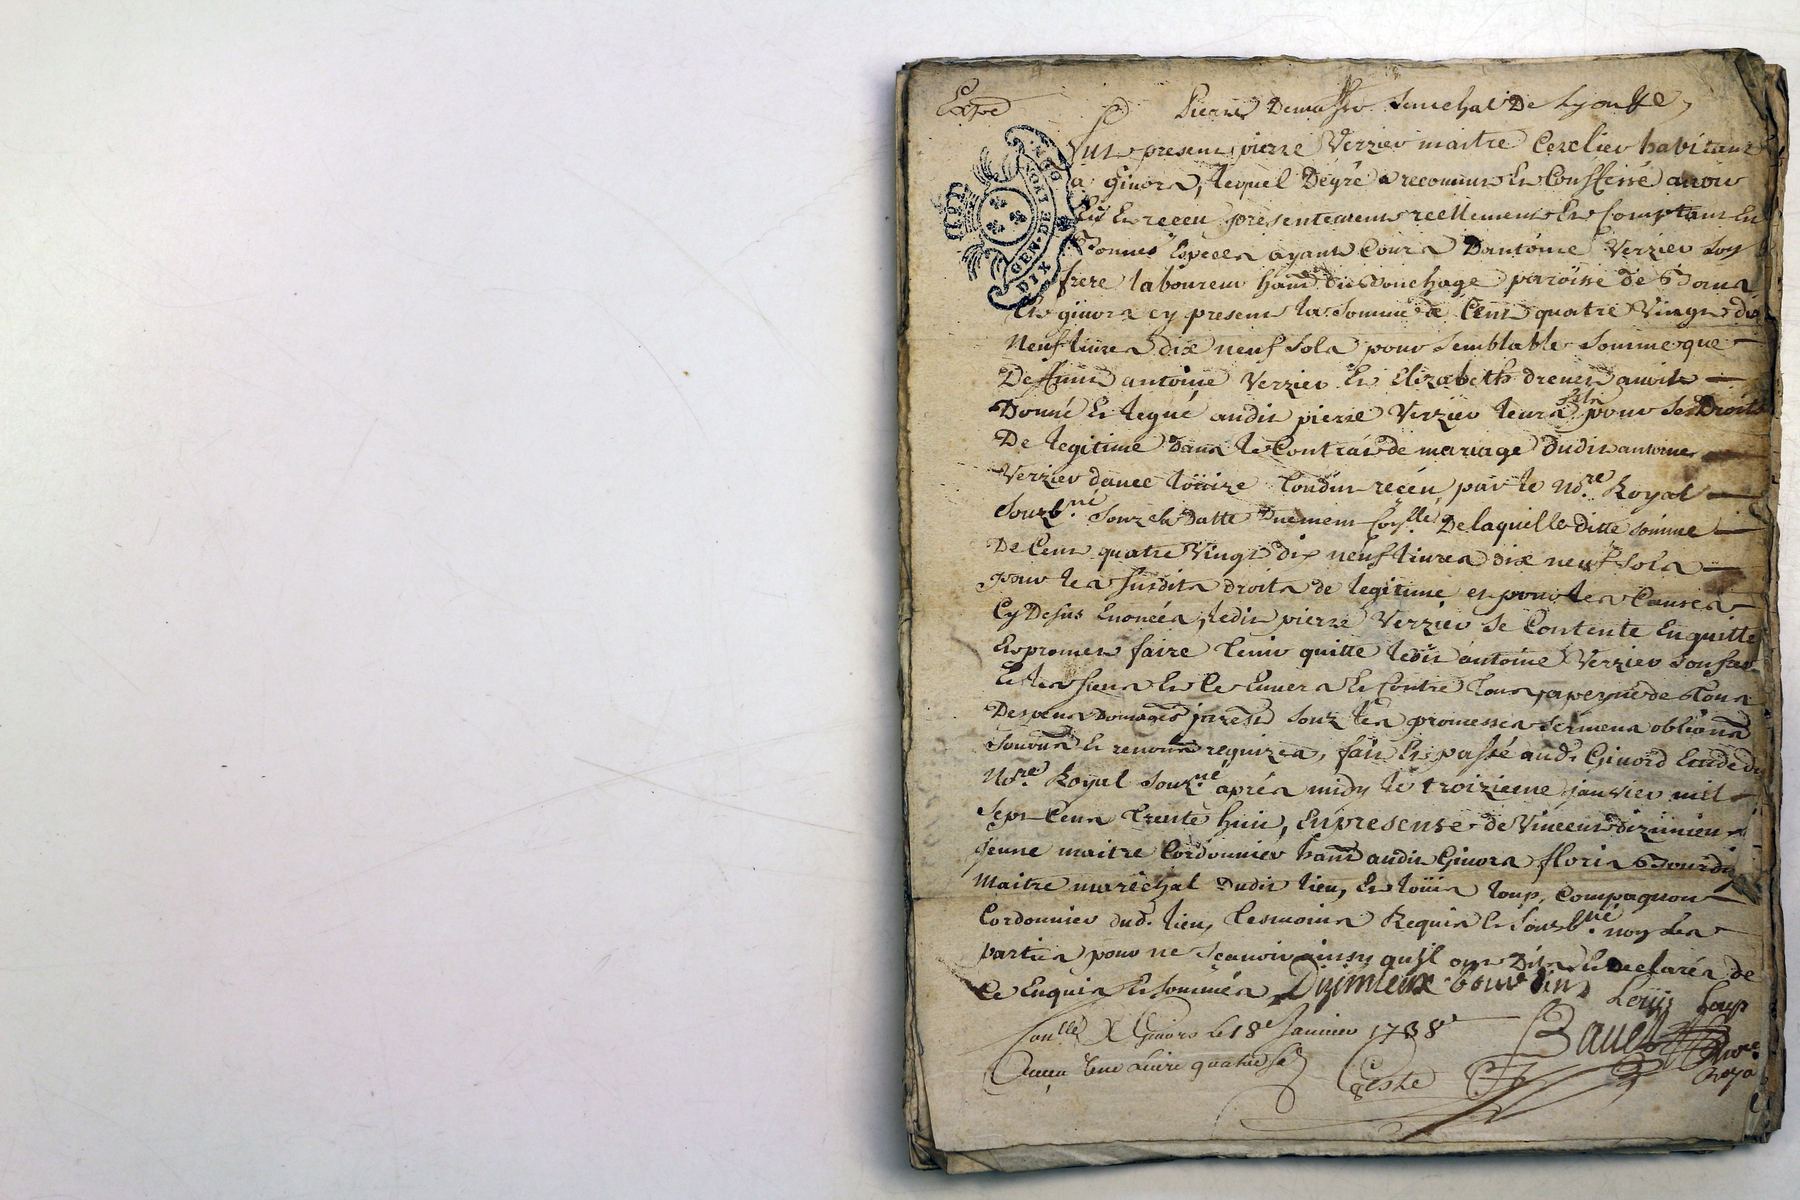 Expé
Pierre Demasso Senechal De Lyon &c,
Fut present pierre Verzier maitre Cerclier habitant
a givors, lequel De gré a reconnu Et Confessé avoir
Eu Et receu presentement reellement Et Comptant En
Bonnes Especes ayant Cours D'antoine Verzier son
frere laboureur habt du Bouchage paroisse de Bans
Et givors cy present la somme de Cent quatre Vingt dix
Neuf livres dix neuf sols pour semblable somme que
Deffunt antoine Verzier Et Elizabeth drevet avoit
Donné Et legué audit pierre Verzier leurs fils pour ses Droits
De legitime Dans le Contrat de mariage dudit antoine
Verzier avec Loüize receu par le No.re Royal
Souz.né Souz sa Datte Duement Con.llé De laquelle ditte somme
De Cent quatre Vingt dix neuf livres dix neuf Sols
pour les susdits droits de legitime et pour les Causes
Cy Desus Enoncés, ledit pierre Verzier se Contente En quitte
Et promet faire tenir quitte ledit antoine Verzier son frere
Et les siens Et Ce Envers Et Contre tous, a peyne de tous
Despens Domages souz les promesses serment
Et requizes, fait Et passé aud. Givord Etude du
No.re Royal Souz.né aprés midy le troizieme janvier mil
Sept Cent trente huit, En presense de Vincent dizimieu
jeune maitre Cordonnier audit Givors floris Bourdin
Maitre maréchal Dudit lieu, Et loüis loup, Compagnon
Cordonnier dud. lieu, tesmoins Requis Et non les
parties pour ne sçavoir ainsy qu'il ont Dit Et Declarés de
Ce Enquis Et sommés Dizimieux bourdin
Loüis Loup
Con.llé a Givors le 18e Janvier 1738
Receu Une Livre quatre
No.re
Roya
GEN. DE LYON
DIX DEN